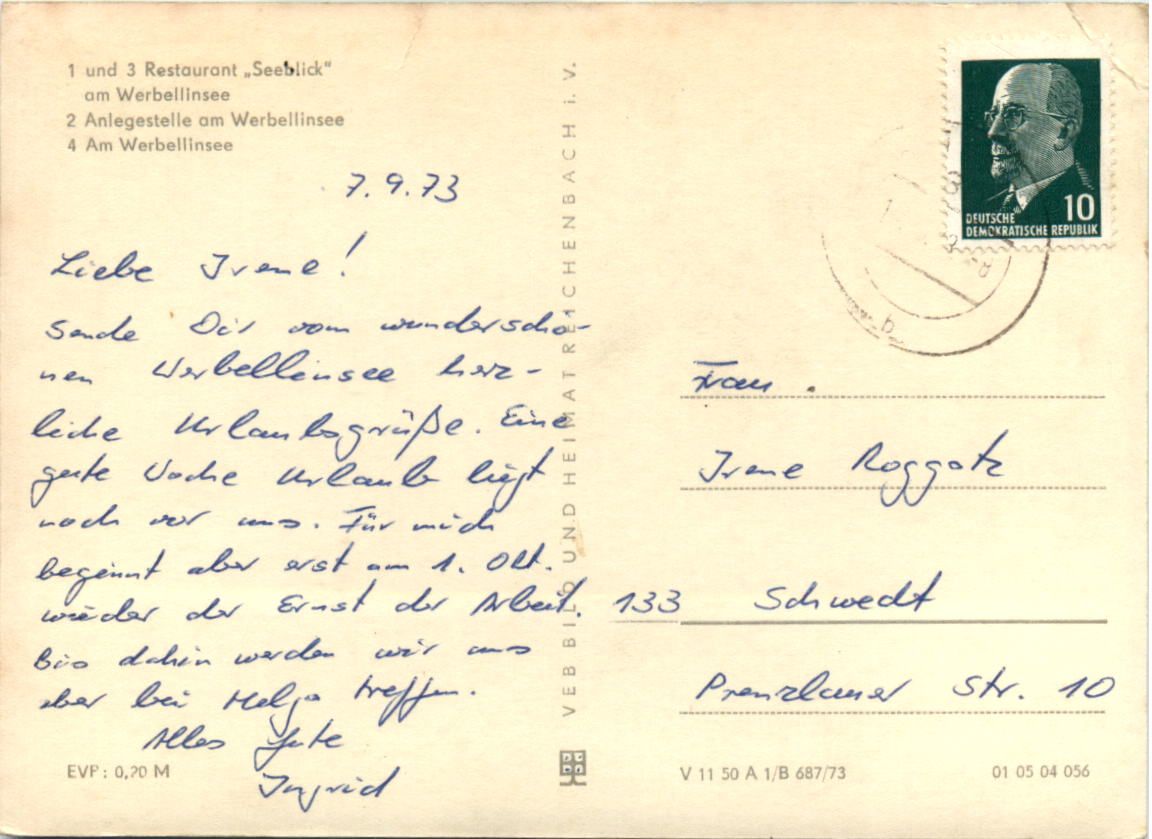 1 und 3 Restaurant „Seeblick"
am Werbellinsee
2 Anlegestelle am Werbellinsee
4 Am Werbellinsee
7.9.73
Liebe Irene!
Sende Dir vom wunderschö-
nen Werbellinsee herz-
liche Urlaubsgrüße. Eine
gute Woche Urlaub liegt
noch vor uns. Für mich
beginnt aber erst am 1. Okt.
wieder der Ernst der Arbeit.
Bis dahin werden wir uns
aber bei Helga treffen.
Alles Gute
Ingrid
EVP: 0,20 M
VEB BILD UND HEIMAT REICHENBACH i. V.
10
DEUTSCHE
DEMOKRATISCHE REPUBLIK
Frau
Irene Roggatz
133 Schwedt
Prenzlauer Str. 10
V 11 50 A 1/B 687/73
01 05 04 056